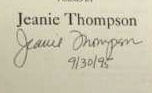 POEMS BY
Jeanie Thompson
Jeanie Thompson
9/30/95